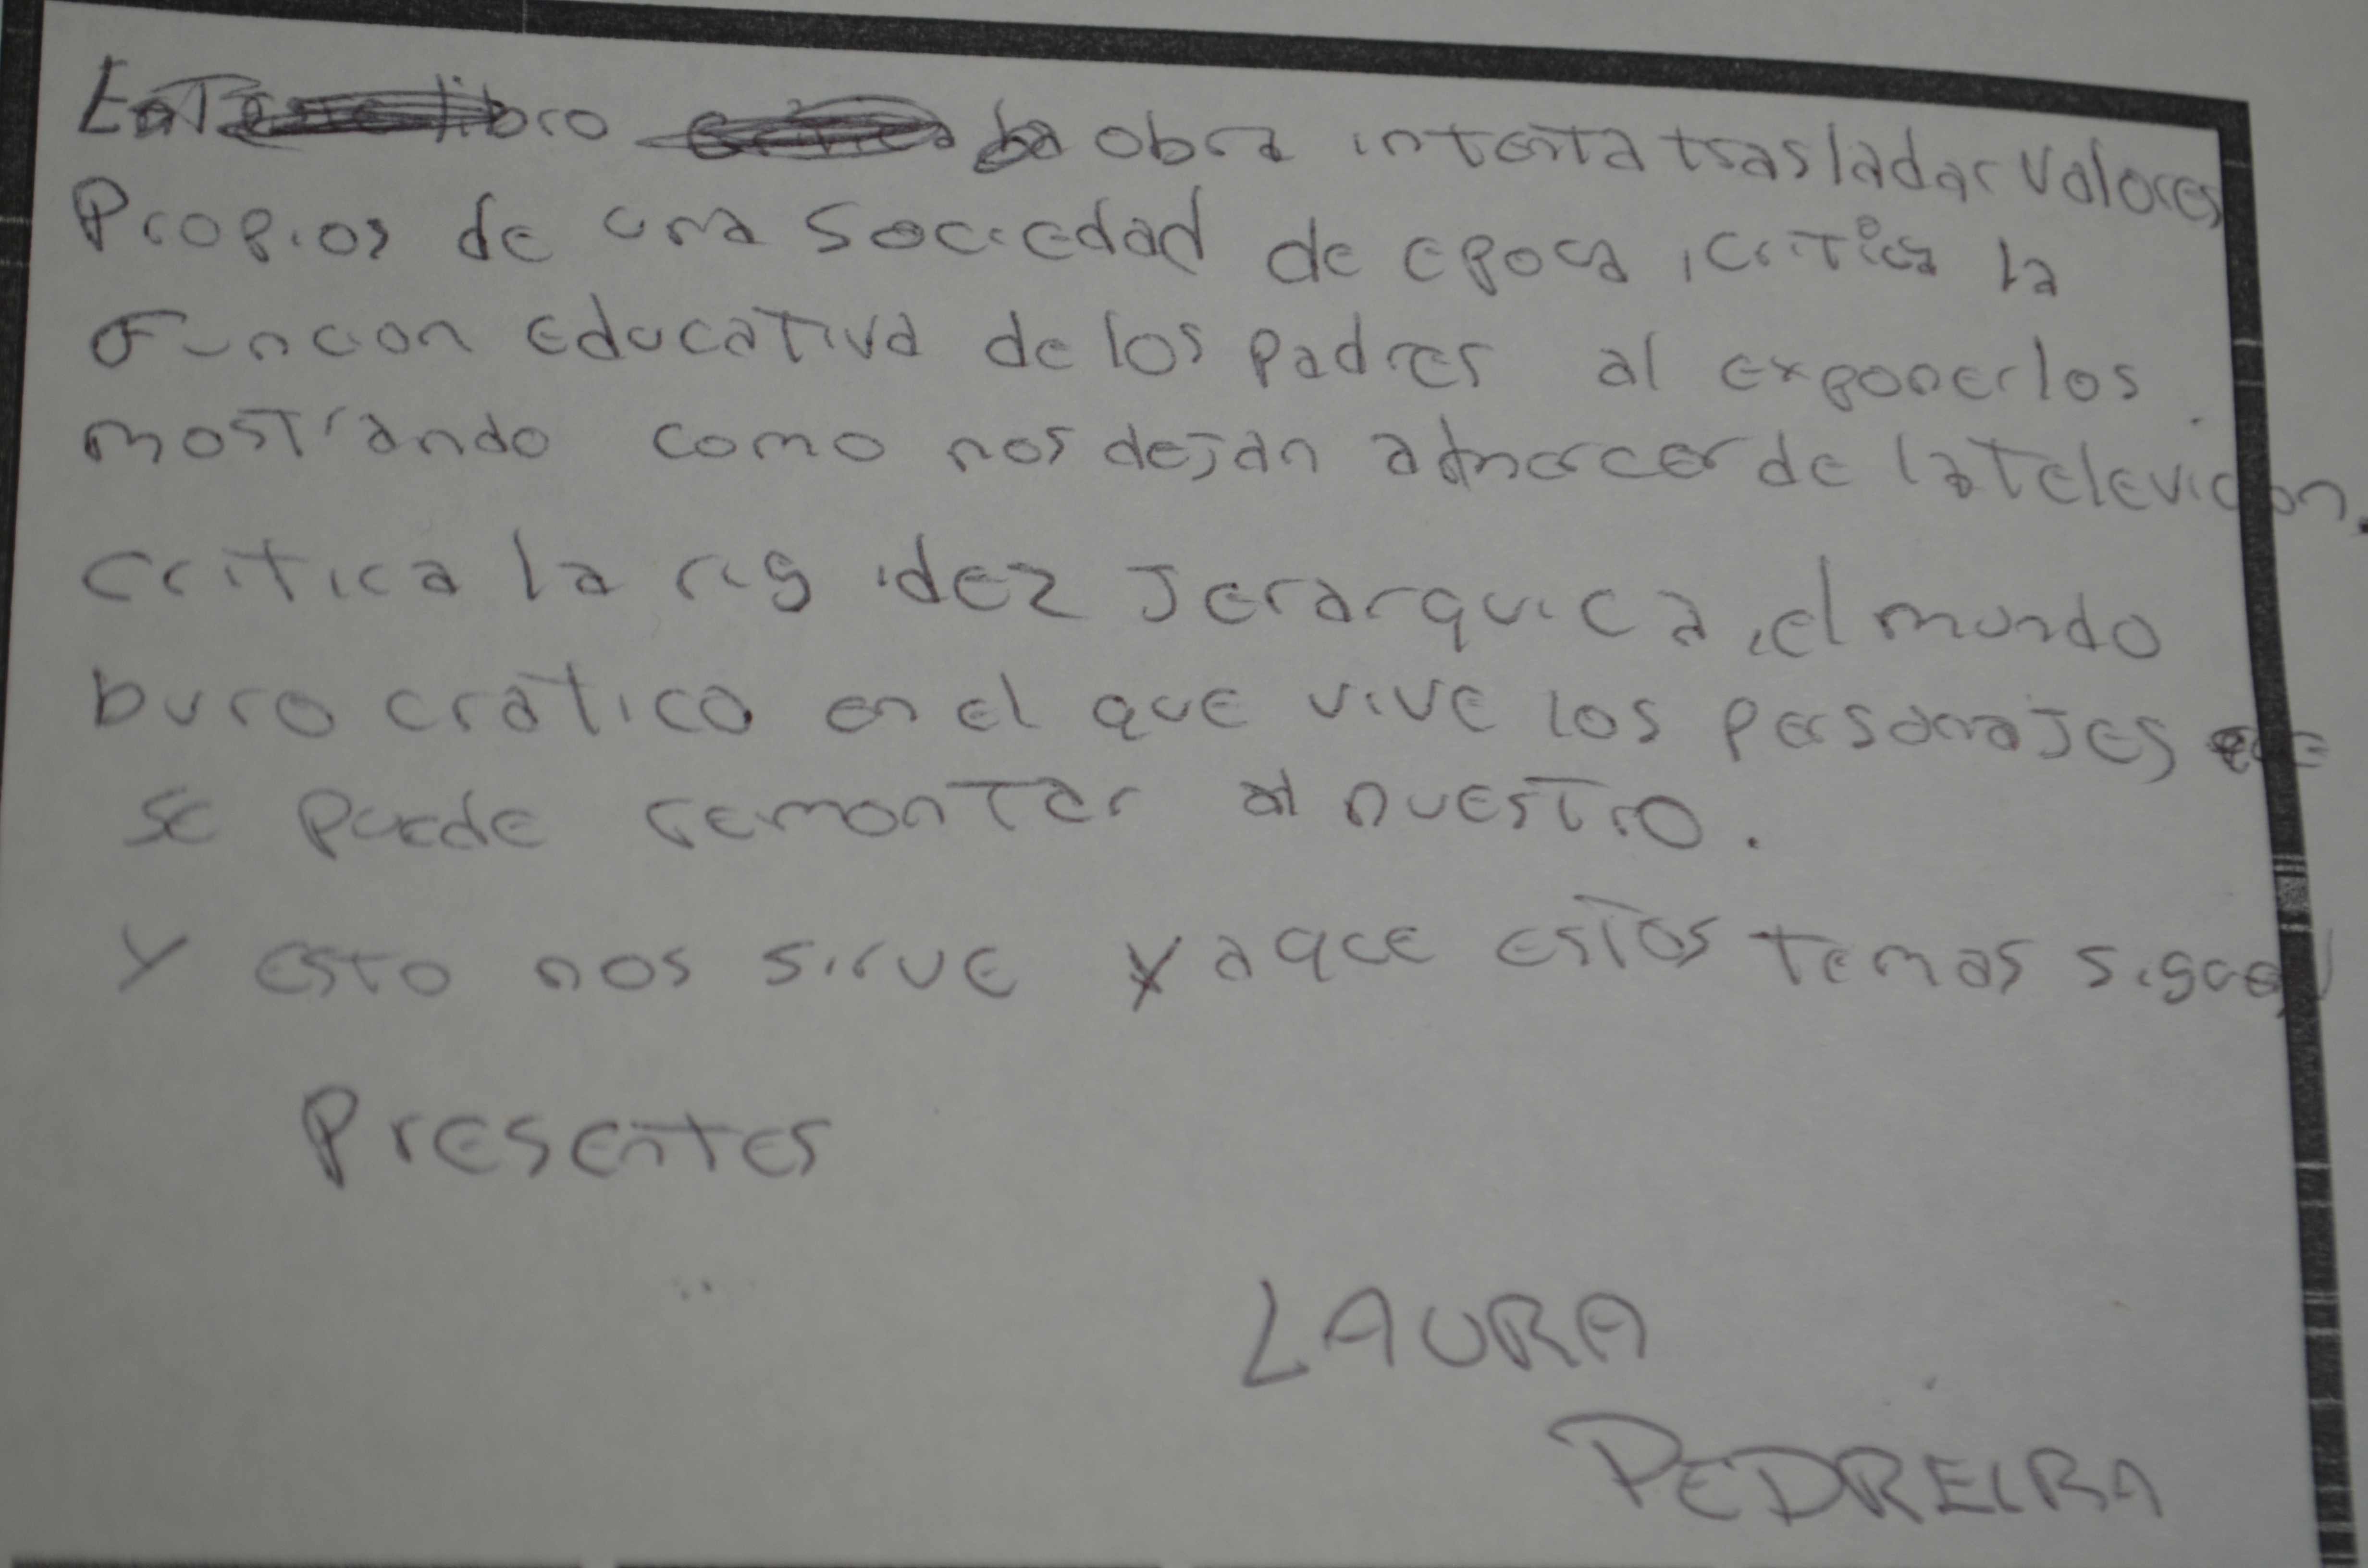 libro obra intenta trasladar valores
Propios de una sociedad de epoca, critica la
Funcion educativa de los padres al exponerlos
mostrando como nos dejan a de la televicion.
critica la rigidez Jerarquica, el mundo
burocratico en el que vive los personajes
se puede remontar al nuestro.
Y esto nos sirve ya que estos temas siguen
Presentes
LAURA
PEDREIRA